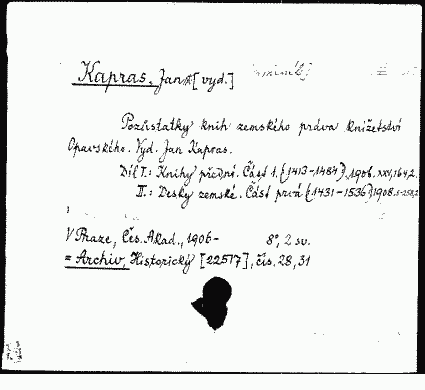 Kapras, Jan [vyd.]
Pozůstatky knih zemského práva knížetství
Opavského. Vyd. Jan Kapras.
Díl I.: Knihy přední. Část 1. (1413-1484). 1906. XXV, 164, 2.
II.: Desky zemské. Část prvá (1431-1536) 1908.
V Praze, Čes. Akad., 1906- 8°, 2 sv.
= Archiv, Historický [22517], čís. 28, 31